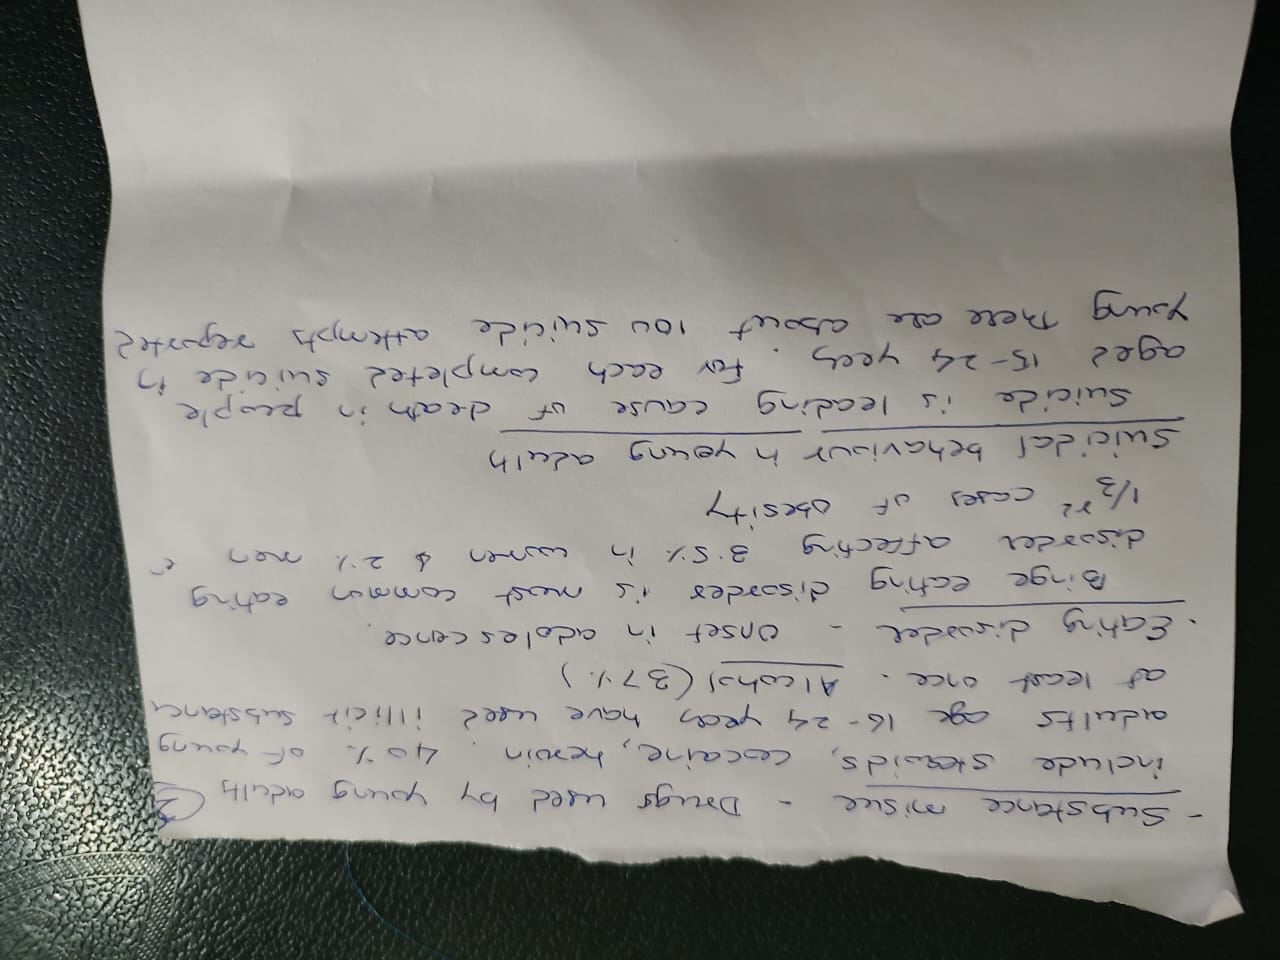 - Substance misue - Drugs used by young adults 2
include steroids, cocaine, heroin. 40% of young
adults age 16-24 years have used illicit substance
at least once. Alcohol (37%)
. Eating disorder - Onset in adolescence.
Binge eating disorder is most common eating
disorder affecting 3.5% in women & 2% men
1/3rd cases of obesity
Suicidal behaviour in young adults
Suicide is leading cause of death in people
aged 15-24 years. For each completed suicide in
young there are about 100 suicide attempts reported